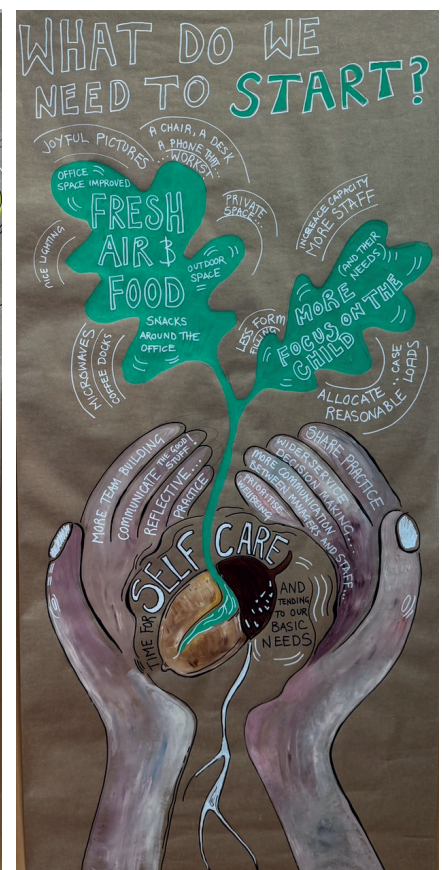 WHAT DO WE
NEED TO START?
JOYFUL PICTURES
A CHAIR, A DESK
A PHONE THAT...
...WORKS!
OFFICE
SPACE IMPROVED
FRESH
AIR &
FOOD
PRIVATE
SPACE...
OUTDOOR
SPACE
NICE LIGHTING
SNACKS
AROUND THE
OFFICE
MICROWAVES
COFFEE DOCKS
INCREACE CAPACITY
MORE STAFF
(AND THEIR
NEEDS)
MORE
FOCUS ON THE
CHILD
LESS FORM
FILLING
ALLOCATE
REASONABLE
..CASE
LOADS
MORE TEAM BUILDING
COMMUNICATE THE GOOD
STUFF
REFLECTIVE...
PRACTICE
SHARE PRACTICE
WIDER SERVICE
DECISION MAKING...
MORE COMMUNICATION
BETWEEN MANAGERS AND STAFF...
PRIORITISE
WELLBEING
TIME FOR
SELF CARE
AND
TENDING
TO OUR
BASIC
NEEDS